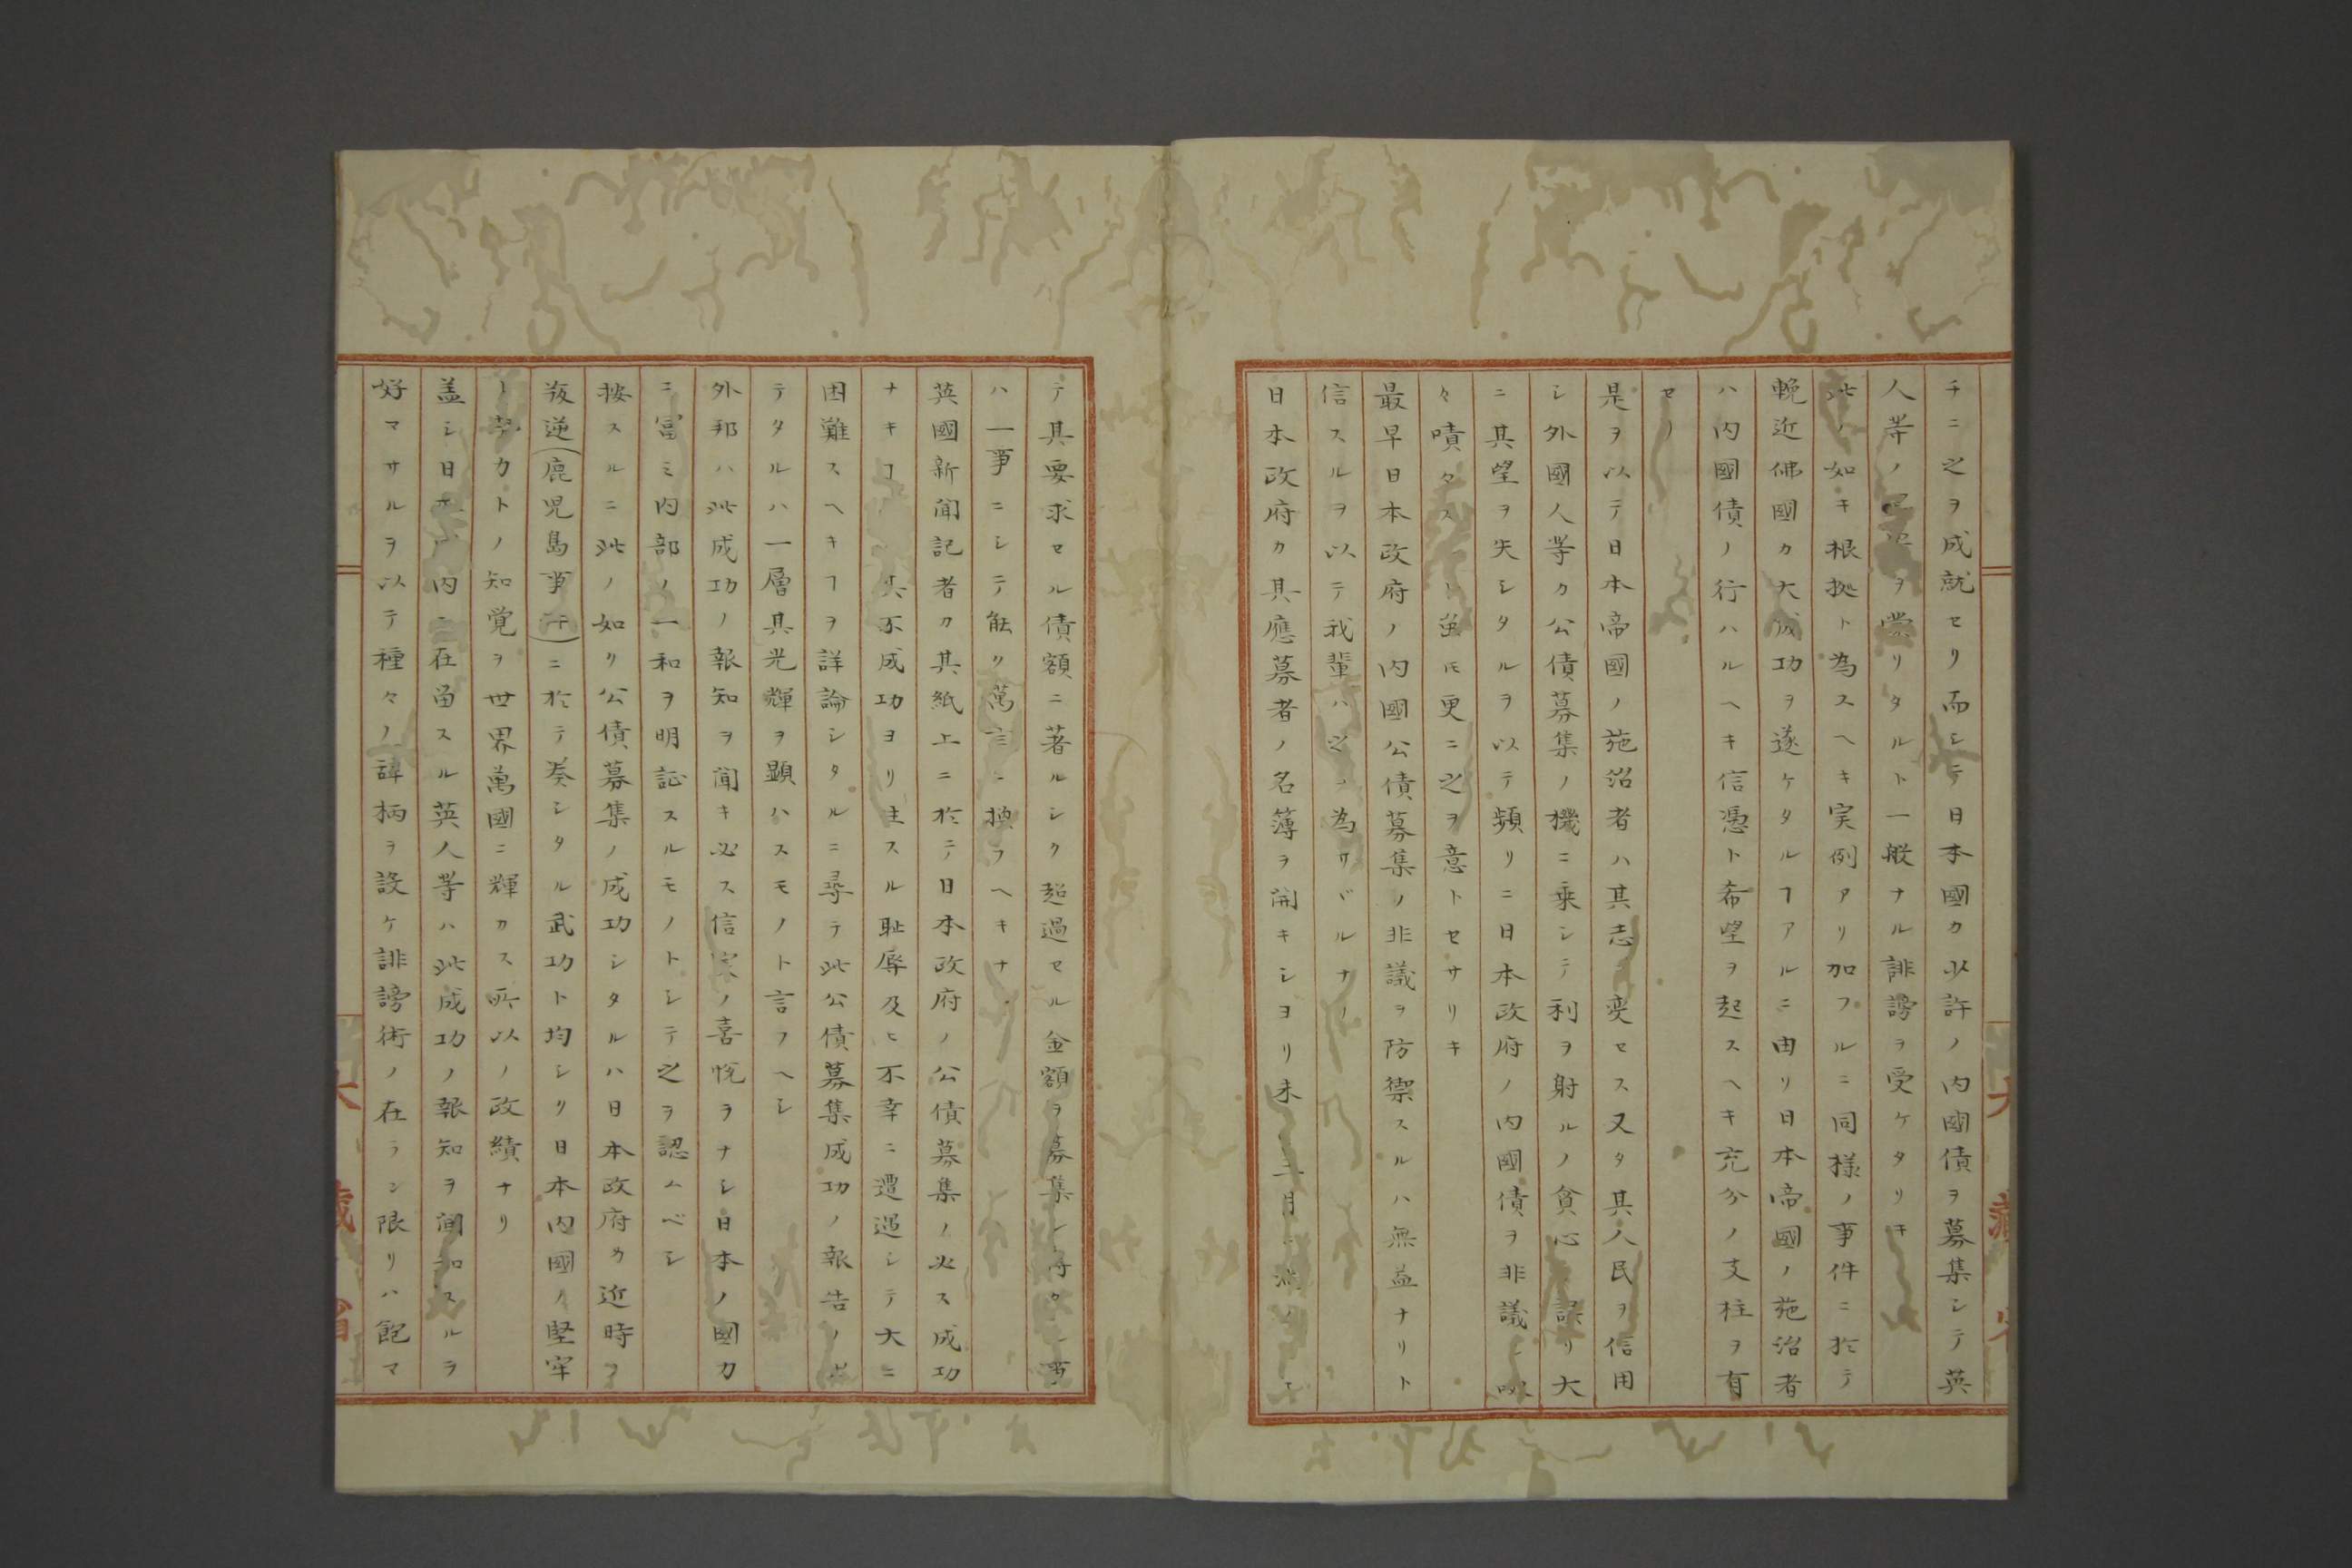 チニ之ヲ成就セリ而シテ日本國カ少許ノ内國債ヲ募集シテ英
人等ノヲ蒙リタルト一般ナル誹謗ヲ受ケタリキ
此ノ如キ根拠ト為スヘキ実例アリ加フルニ同様ノ事件ニ於テ
輓近佛國カ大成功ヲ遂ケタルヿアルニ由リ日本帝國ノ施治者
ハ内國債ノ行ハルヘキ信憑ト希望ヲ起スヘキ充分ノ支柱ヲ有
セリ
是ヲ以テ日本帝國ノ施治者ハ其志変セス又タ其人民ヲ信用
シ外國人等カ公債募集ノ機ニ乗シテ利ヲ射ルノ貪心誤リ大
ニ其望ヲ失シタルヲ以テ頻リニ日本政府ノ内國債ヲ非議シ
々嘖々ス更ニ之ヲ意トセサリキ
最早日本政府ノ内國公債募集ノ非議ヲ防禦スルハ無益ナリト
信スルヲ以テ我輩ハ之ヲ為サヾルナリ
日本政府カ其應募者ノ名簿ヲ開キシヨリ未二月
テ其要求セル債額ニ著ルシク超過セル金額ヲ募集シ得タ
ハ一事ニシテ能ク萬言ニ換フヘキナ
英國新聞記者カ其紙上ニ於テ日本政府ノ公債募集ノ必ス成功
ナキヿ其不成功ヨリ生スル耻辱及ヒ不幸ニ遭遇シテ大ニ
困難スヘキヿヲ詳論シタルニ尋テ此公債募集成功ノ報告ノ
テタルハ一層其光輝ヲ顕ハスモノト言フヘシ
外邦ハ此成功ノ報知ヲ聞キ必ス信実ノ喜悦ヲナシ日本ノ國力
ニ富ミ内部ノ一和ヲ明証スルモノトシテ之ヲ認ムベシ
按スルニ此ノ如ク公債募集ノ成功シタルハ日本政府カ近時ヿ
叛逆(鹿児島事件)ニ於テ奏シタル武功ト均シク日本内國ノ堅牢
ト幸カトノ知覚ヲ世界萬國ニ輝カス所以ノ政績ナリ
盖シ日本内ニ在留スル英人等ハ此成功ノ報知ヲ聞知スルヲ
好マサルヲ以テ種々ノ話柄ヲ設ケ誹謗術ノ在ラン限リハ飽マ
大藏省